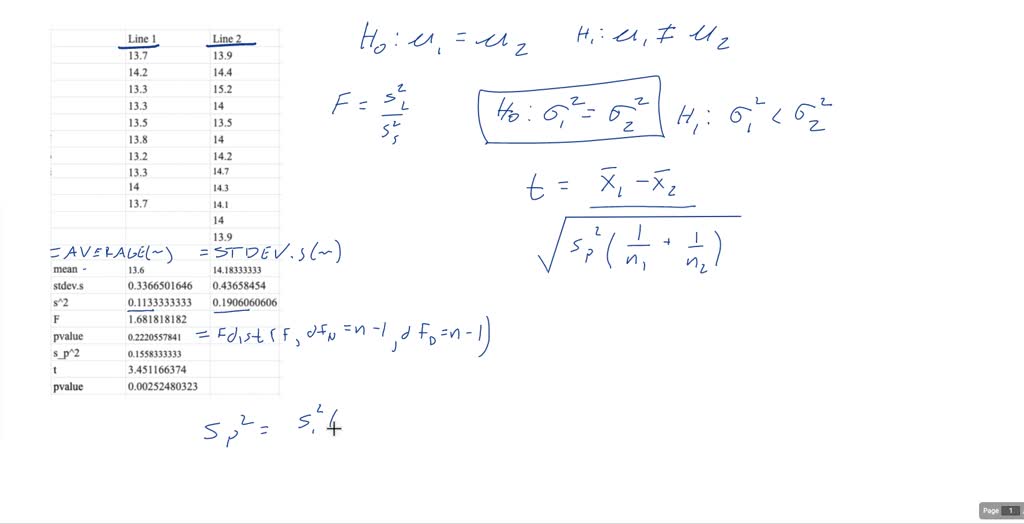 Line 1 Line 2
13.7 13.9
14.2 14.4
13.3 15.2
13.3 14
13.5 13.5
13.8 14
13.2 14.2
13.3 14.7
14 14.3
13.7 14.1
14
13.9
=AVERAGE(~) =STDEV.S(~)
mean - 13.6 14.18333333
stdev.s 0.3366501646 0.43658454
s^2 0.1133333333 0.1906060606
F 1.681818182
pvalue 0.2220557841 = Fdist(F, dF_N=n-1, dF_D=n-1)
s_p^2 0.1558333333
t 3.451166374
pvalue 0.00252480323
H₀: μ₁ = μ₂ H₁: μ₁ ≠ μ₂
F = s_L² / s_s² H₀: σ₁² = σ₂² H₁: σ₁² < σ₂²
t = (x̄₁ - x̄₂) / √(s_p² (1/n₁ + 1/n₂))
s_p² = s₁² (
Page 1